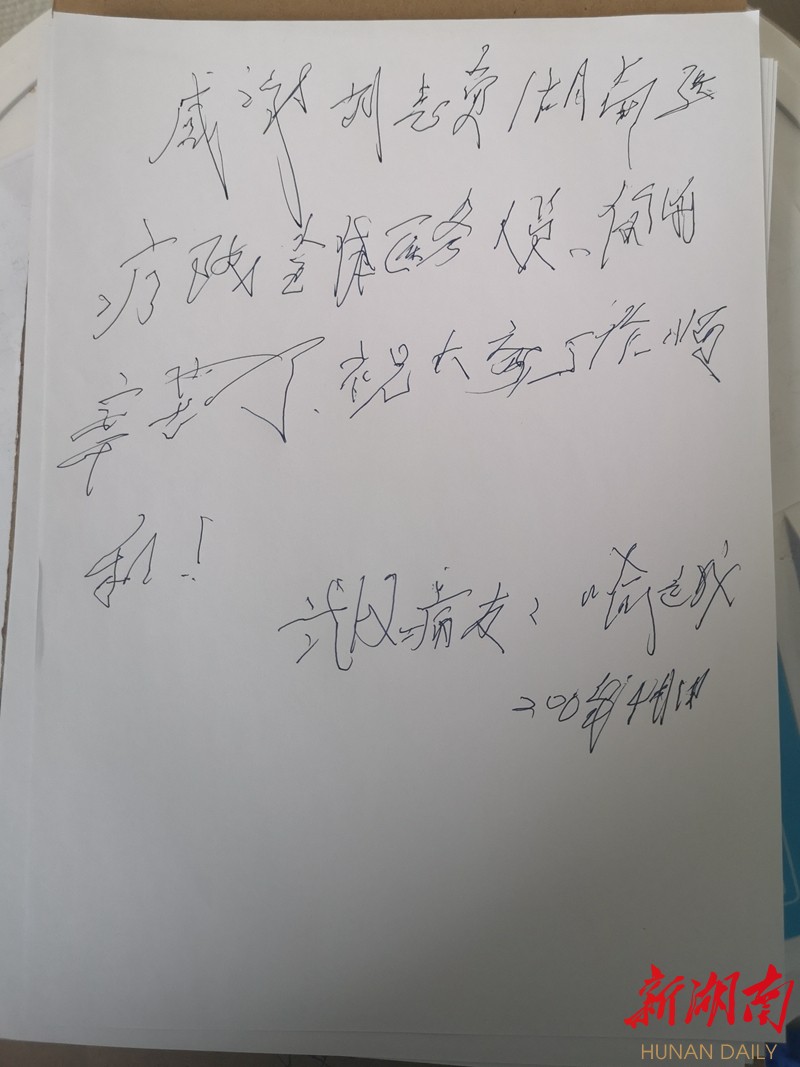 感谢胡志英湖南医
疗队全体医务人员、你们
辛苦了、祝大家工作顺
利！
武汉病友：喻
年4月1日
新湖南
HUNAN DAILY